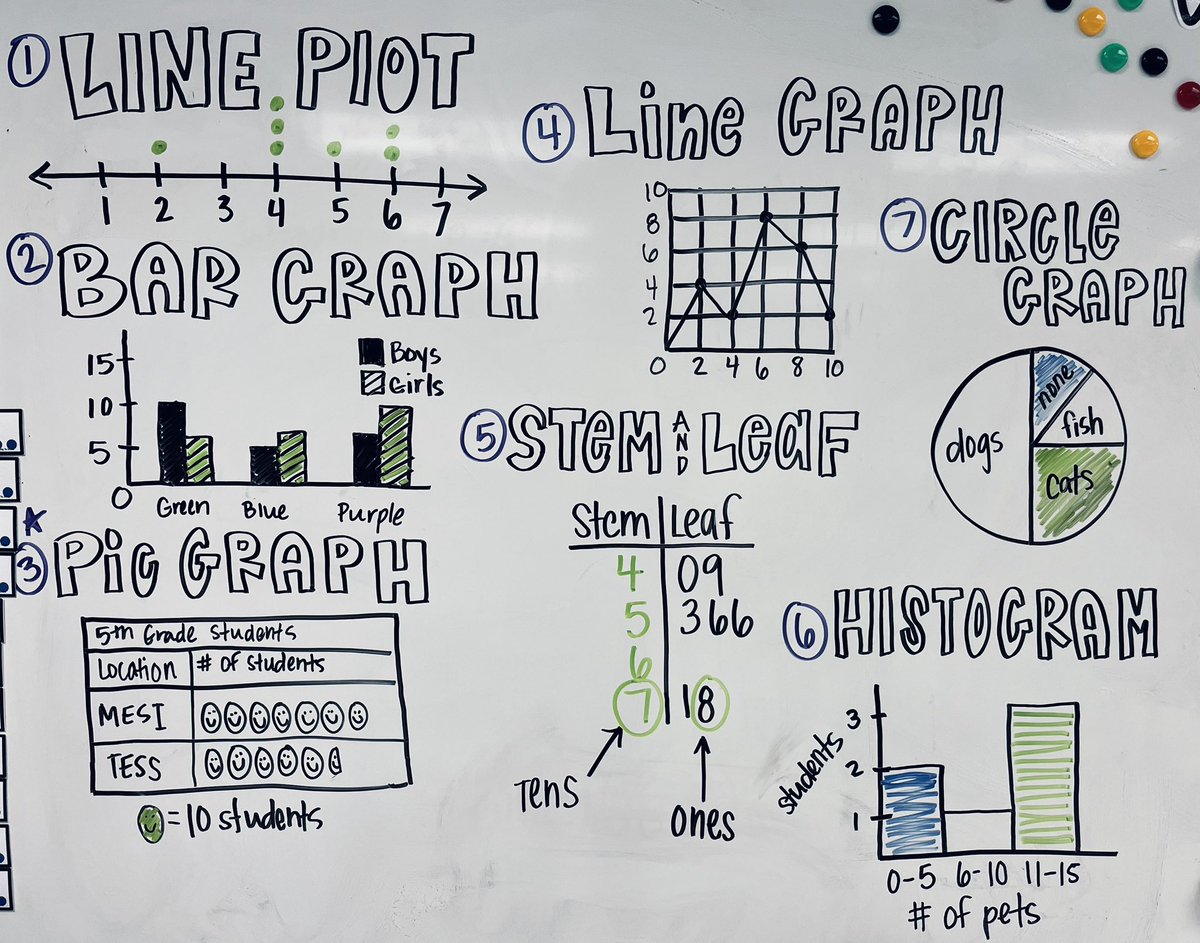 1 LINE PlOT
1 2 3 4 5 6 7
2 BAR GRAPH
15
10
5
0
Boys
Girls
Green Blue Purple
3 Pic GRAPH
5th Grade students
Location # of students
MESI
TESS
= 10 students
4 Line GRAPH
10
8
6
4
2
0 2 4 6 8 10
5 STEM AND LEAF
Stem Leaf
4 09
5 366
6
7 18
Tens
ones
7 CIRCLE
GRAPH
none
fish
dogs
cats
6 HISTOGRAM
students
3
2
1
0-5 6-10 11-15
# of pets